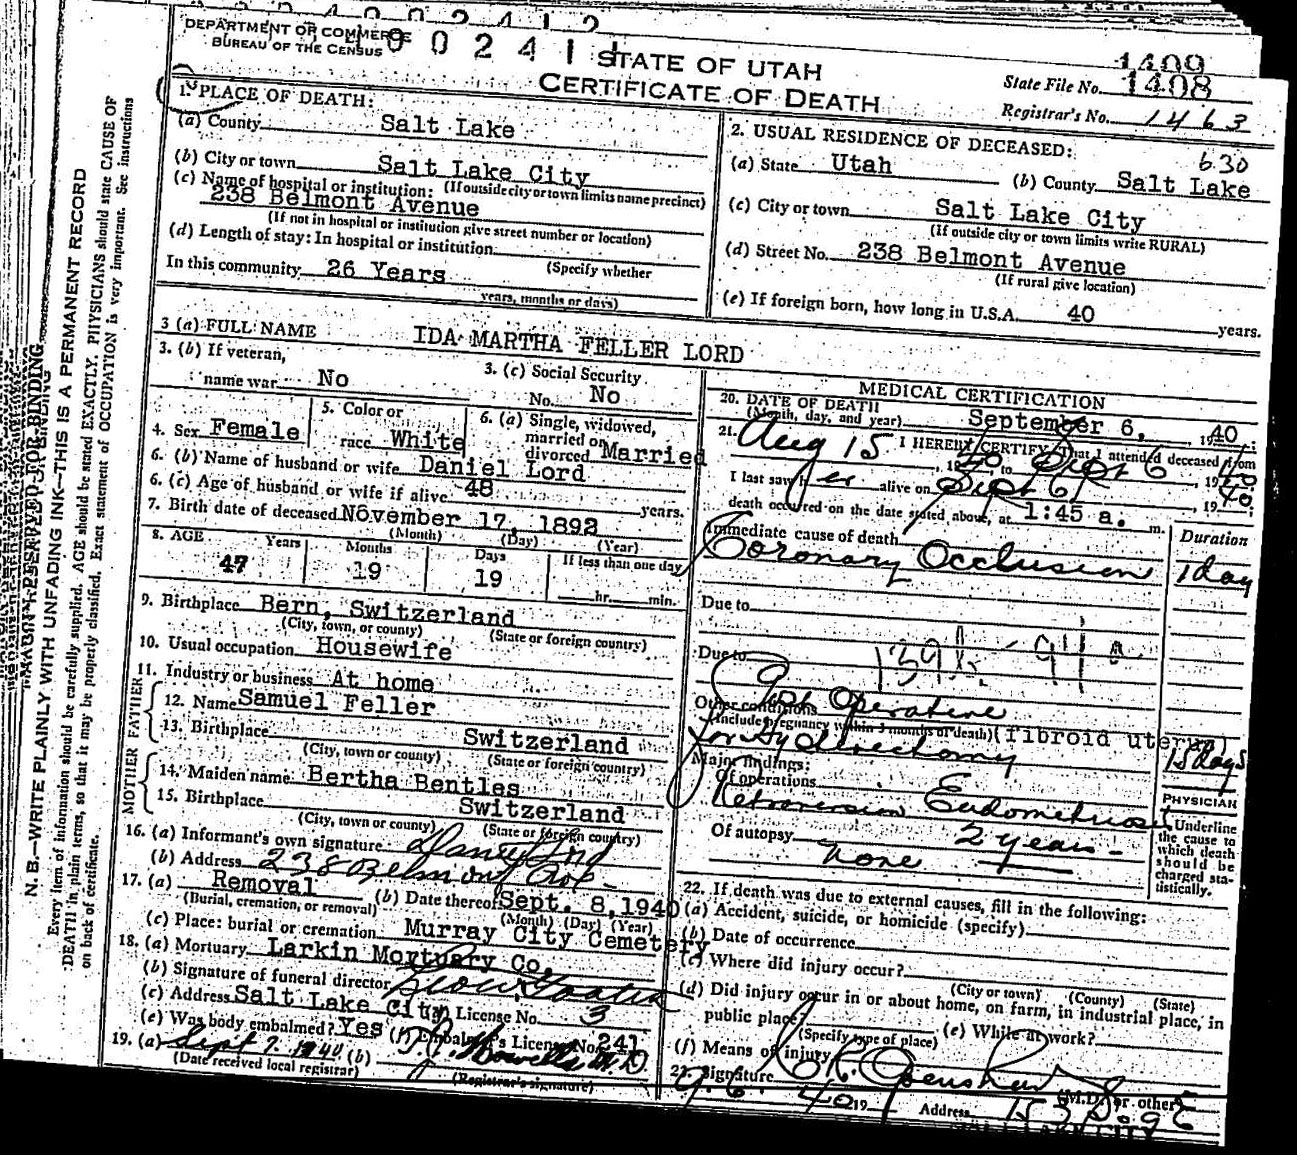 DEPARTMENT OF COMMERCE
BUREAU OF THE CENSUS
STATE OF UTAH
CERTIFICATE OF DEATH
1409
State File No. 1408
Registrar's No. 1463
1. PLACE OF DEATH:
(a) County Salt Lake
(b) City or town Salt Lake City
(If outside city or town limits name precinct)
(c) Name of hospital or institution:
238 Belmont Avenue
(If not in hospital or institution give street number or location)
(d) Length of stay: In hospital or institution
(Specify whether
In this community 26 Years
years, months or days)
2. USUAL RESIDENCE OF DECEASED:
630
(a) State Utah (b) County Salt Lake
(c) City or town Salt Lake City
(If outside city or town limits write RURAL)
(d) Street No. 238 Belmont Avenue
(If rural give location)
(e) If foreign born, how long in U.S.A. 40 years.
3 (a) FULL NAME IDA MARTHA FELLER LORD
3. (b) If veteran,
name war No
3. (c) Social Security
No. No
4. Sex Female
5. Color or
race White
6. (a) Single, widowed,
married or
divorced Married
6. (b) Name of husband or wife Daniel Lord
6. (c) Age of husband or wife if alive 48 years.
7. Birth date of deceased November 17, 1892
(Month) (Day) (Year)
8. AGE Years Months Days If less than one day
47 19 19 hr. min.
9. Birthplace Bern, Switzerland
(City, town, or county) (State or foreign country)
10. Usual occupation Housewife
11. Industry or business At home
FATHER
12. Name Samuel Feller
13. Birthplace Switzerland
(City, town or county) (State or foreign country)
MOTHER
14. Maiden name Bertha Bentles
15. Birthplace Switzerland
(City, town or county) (State or foreign country)
16. (a) Informant's own signature Daniel Lord
(b) Address 238 Belmont Ave
17. (a) Removal (b) Date thereof Sept. 8, 1940
(Burial, cremation, or removal) (Month) (Day) (Year)
(c) Place: burial or cremation Murray City Cemetery
18. (a) Mortuary Larkin Mortuary Co.
(b) Signature of funeral director
(c) Address Salt Lake City (d) License No. 3
(e) Was body embalmed? Yes (f) Embalmer's License No. 241
19. (a) Sept 7. 1940 (b) Howells M.D.
(Date received local registrar) (Registrar's signature)
MEDICAL CERTIFICATION
20. DATE OF DEATH
(Month, day, and year) September 6, 1940
21. I HEREBY CERTIFY, That I attended deceased from
Aug 15, 1940 to Sept 6, 1940
I last saw her alive on Sept 6, 1940;
death occurred on the date stated above, at 1:45 a. m.
Immediate cause of death Duration
Coronary Occlusion 1 day
Due to
Due to
Other conditions Post Operative
(Include pregnancy within 3 months of death) (fibroid uterus)
for Hysterectomy 15 days
Major findings:
Of operations
Retroversion Endometriosis
2 years
Of autopsy none
PHYSICIAN
Underline
the cause to
which death
should be
charged sta-
tistically.
22. If death was due to external causes, fill in the following:
(a) Accident, suicide, or homicide (specify)
(b) Date of occurrence
(c) Where did injury occur?
(City or town) (County) (State)
(d) Did injury occur in or about home, on farm, in industrial place, in
public place?
(Specify type of place) (e) While at work?
(f) Means of injury
23. Signature (M.D. or other)
9. 6. 40 19 Address
N. B.—WRITE PLAINLY WITH UNFADING INK—THIS IS A PERMANENT RECORD
Every item of information should be carefully supplied. AGE should be stated EXACTLY. PHYSICIANS should state CAUSE OF
DEATH in plain terms, so that it may be properly classified. Exact statement of OCCUPATION is very important. See instructions
on back of certificate.
MARGIN RESERVED FOR BINDING